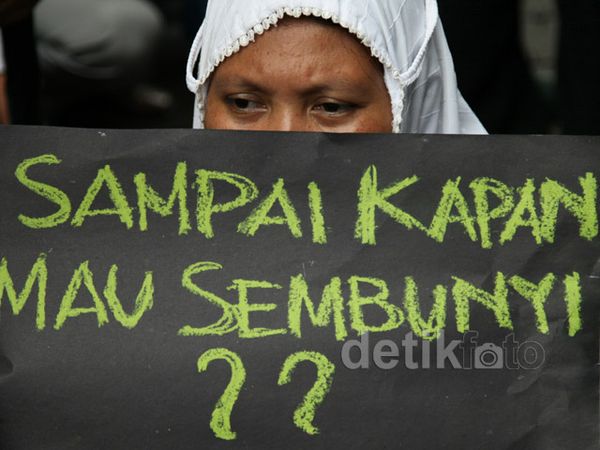 SAMPAI KAPAN
MAU SEMBUNYI
??
detikfoto